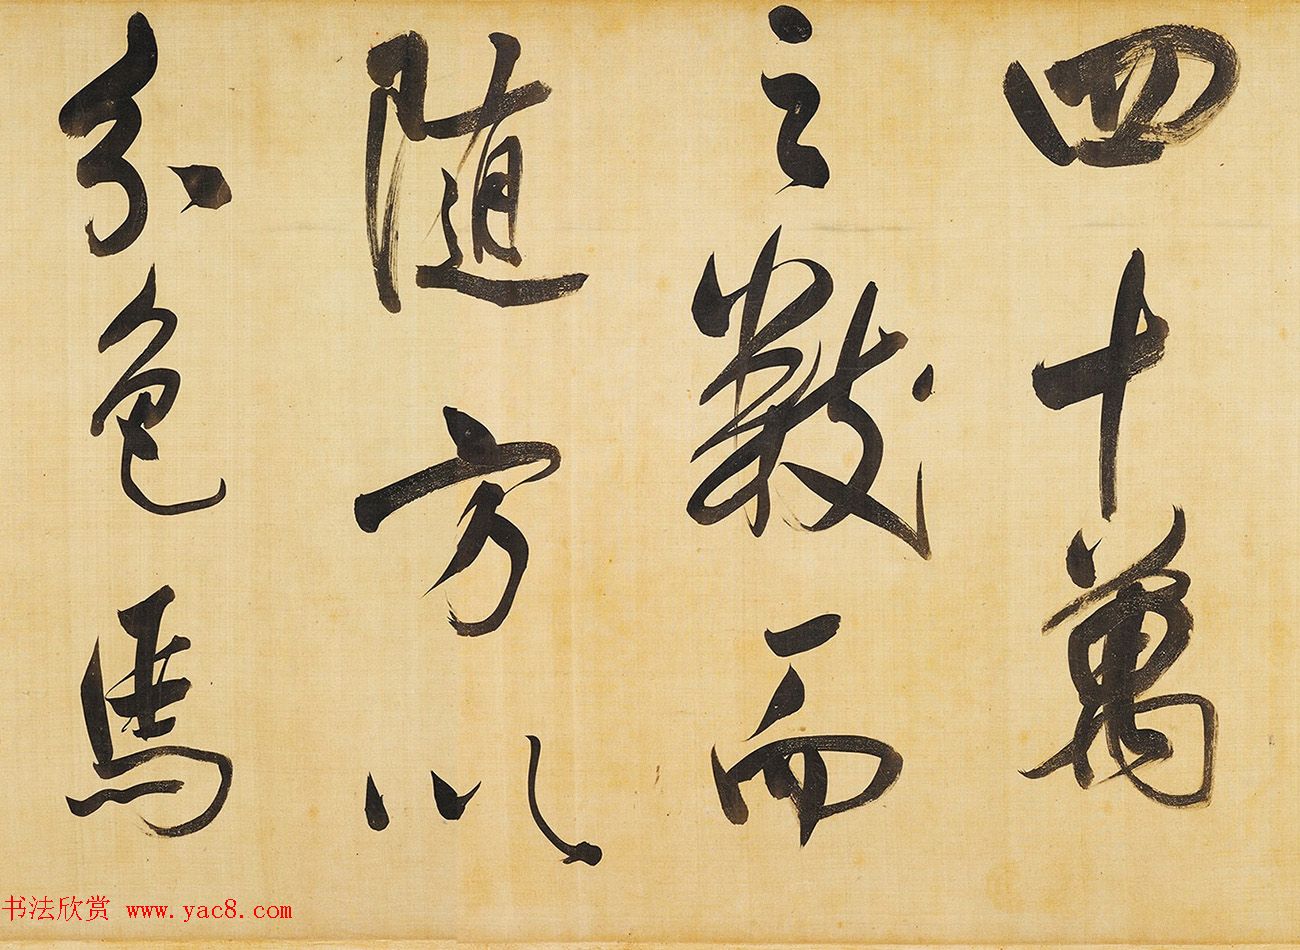 四十萬
之數而
隨方以
分色馬
书法欣赏 www.yac8.com